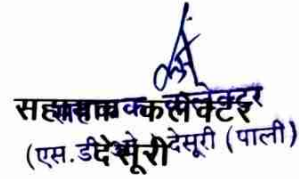 सहायक कलेक्टर
(एस.डी.ओ.) देसूरी (पाली)
सहायक कलेक्टर
देसूरी